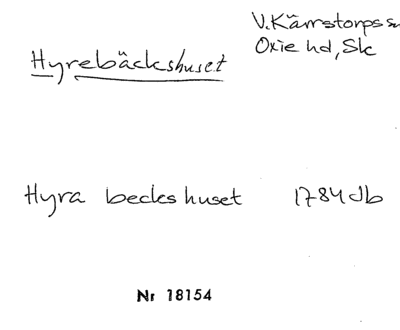 V. Kärrstorps sn
Oxie hd, Sk
Hyrebäckshuset
Hyra beckshuset 1784 Jb
Nr 18154